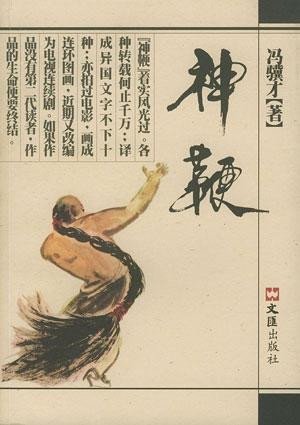 冯骥才【著】
神鞭
『神鞭』著实风光过。各
种转载何止千万；译
成异国文字不下十
种；亦拍过电影，画成
连环图画，近期又改编
为电视连续剧。如果作
品没有第二代读者，作
品的生命便要终结。
文汇出版社